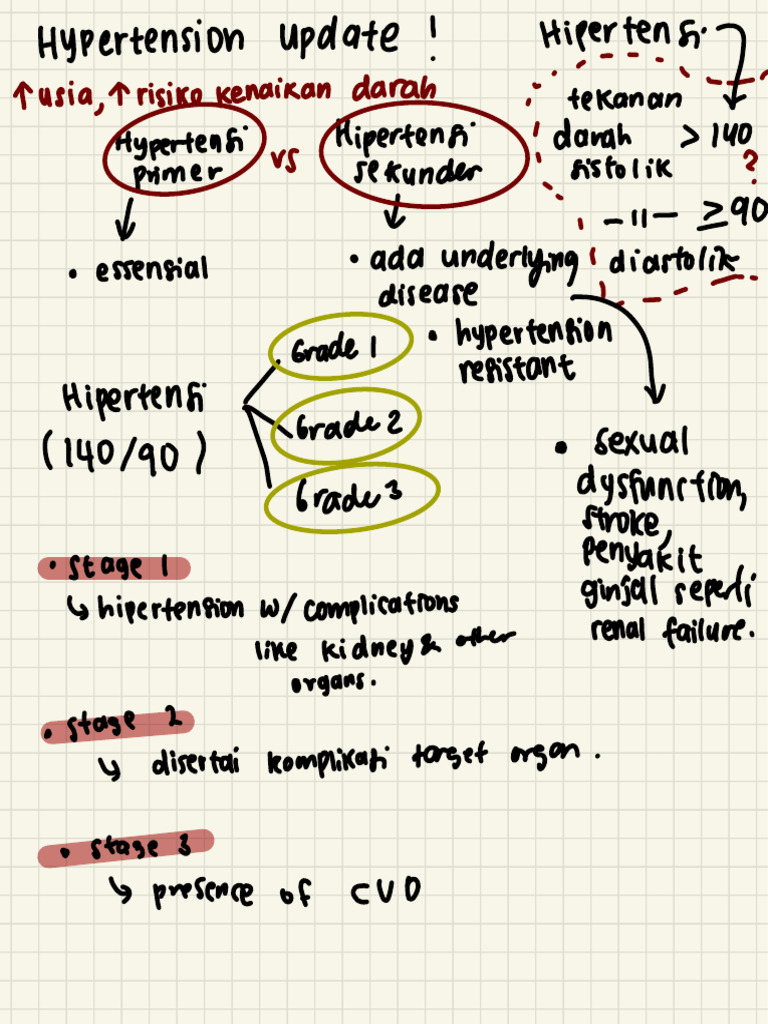 Hypertension update !
↑ usia, ↑ risiko kenaikan darah
Hypertensi
primer
vs
Hipertensi
sekunder
• essensial
• ada underlying
disease
• hypertension
resistant
Hipertensi
tekanan
darah > 140
sistolik ?
-11- ≥90
diastolik
• sexual
dysfunction,
stroke,
penyakit
ginjal seperti
renal failure.
Hipertensi
(140/90)
Grade 1
Grade 2
Grade 3
• stage 1
↳ hipertension w/ complications
like kidney & other
organs.
• stage 2
↳ disertai komplikasi target organ.
• stage 3
↳ presence of CVD